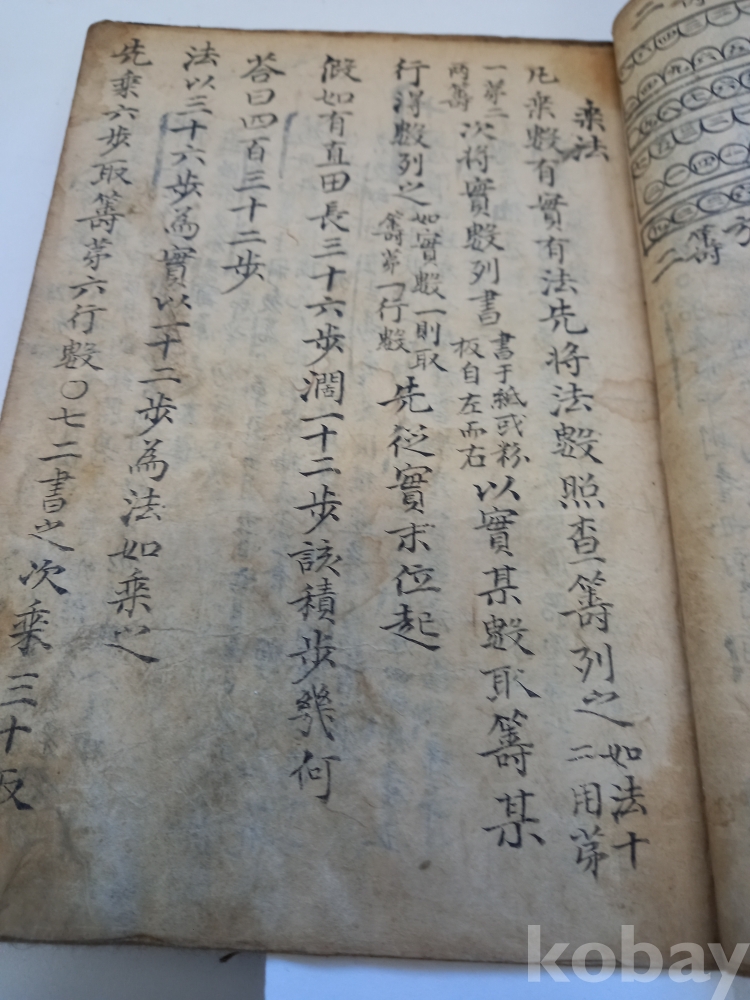 乘法
凡乘數有實有法先將法數照查籌列之如法十二用苐
一苐二兩籌次將實數列書書于紙或粉板自左而右以實某數取籌某
行得數列之如實數一則取籌苐一行數先從實末位起
假如有直田長三十六步濶一十二步該積步幾何
答曰四百三十二步
法以三十六步為實以一十二步為法如乘之
先乘六步取籌苐六行數〇七二書之次乘三十反
二籌
kobay